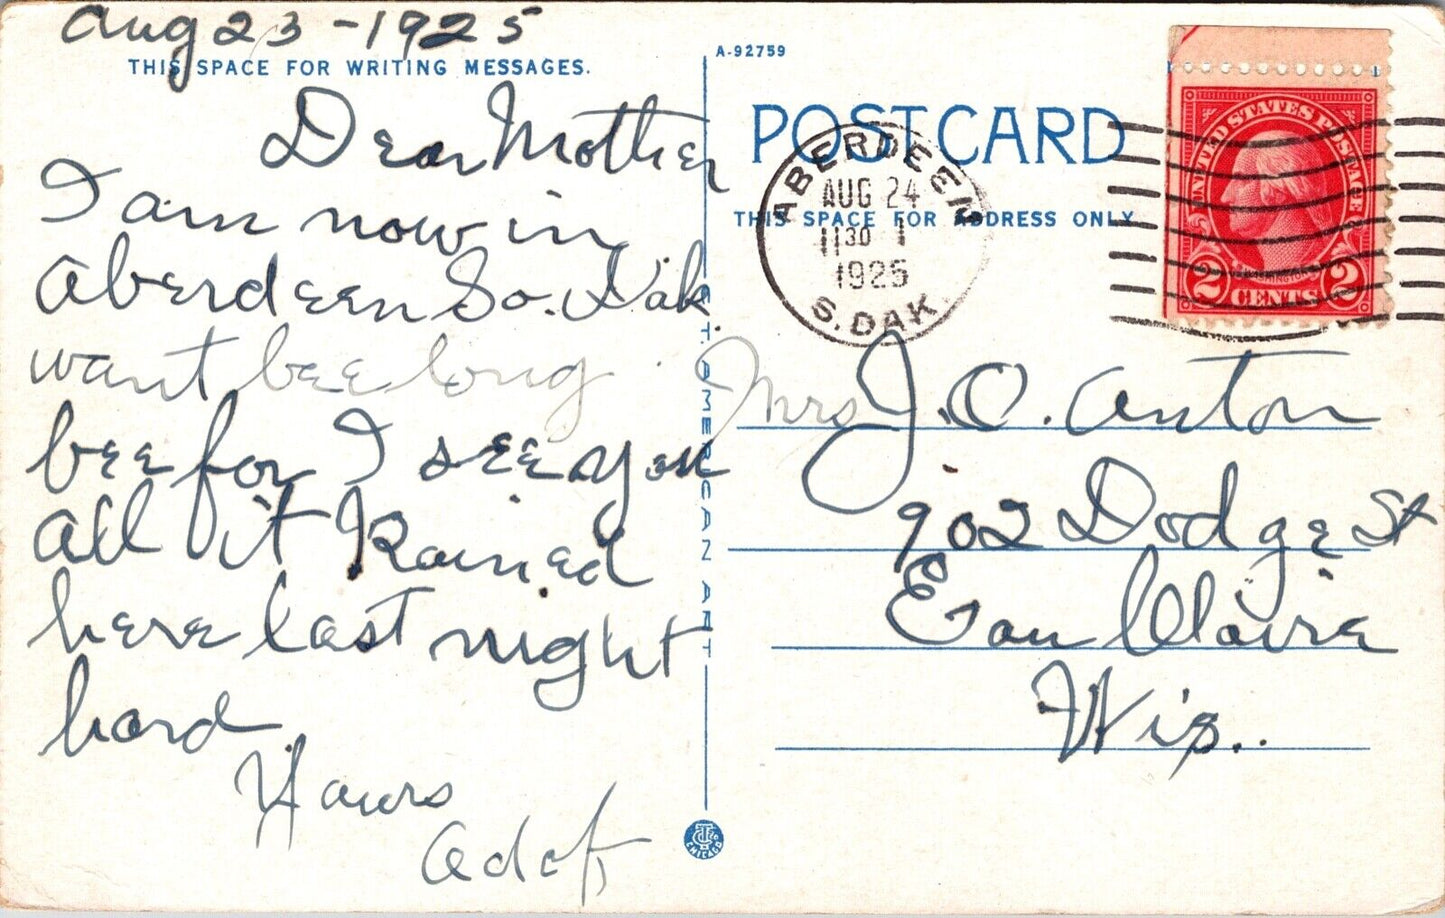 Aug 23 - 1925
THIS SPACE FOR WRITING MESSAGES.
Dear Mother
I am now in
Aberdeen So. Dak
want bee long
bee for I see you
all it Rained
here last night
hard
Yours
Adolf
A-92759
POST CARD
THIS SPACE FOR ADDRESS ONLY
ABERDEEN
AUG 24
11 30
1925
S. DAK.
UNITED STATES POSTAGE
WASHINGTON
2 CENTS 2
Mrs J. O. Anton
902 Dodge St
Eau Claire
Wis..
C. T. AMERICAN ART
CHICAGO